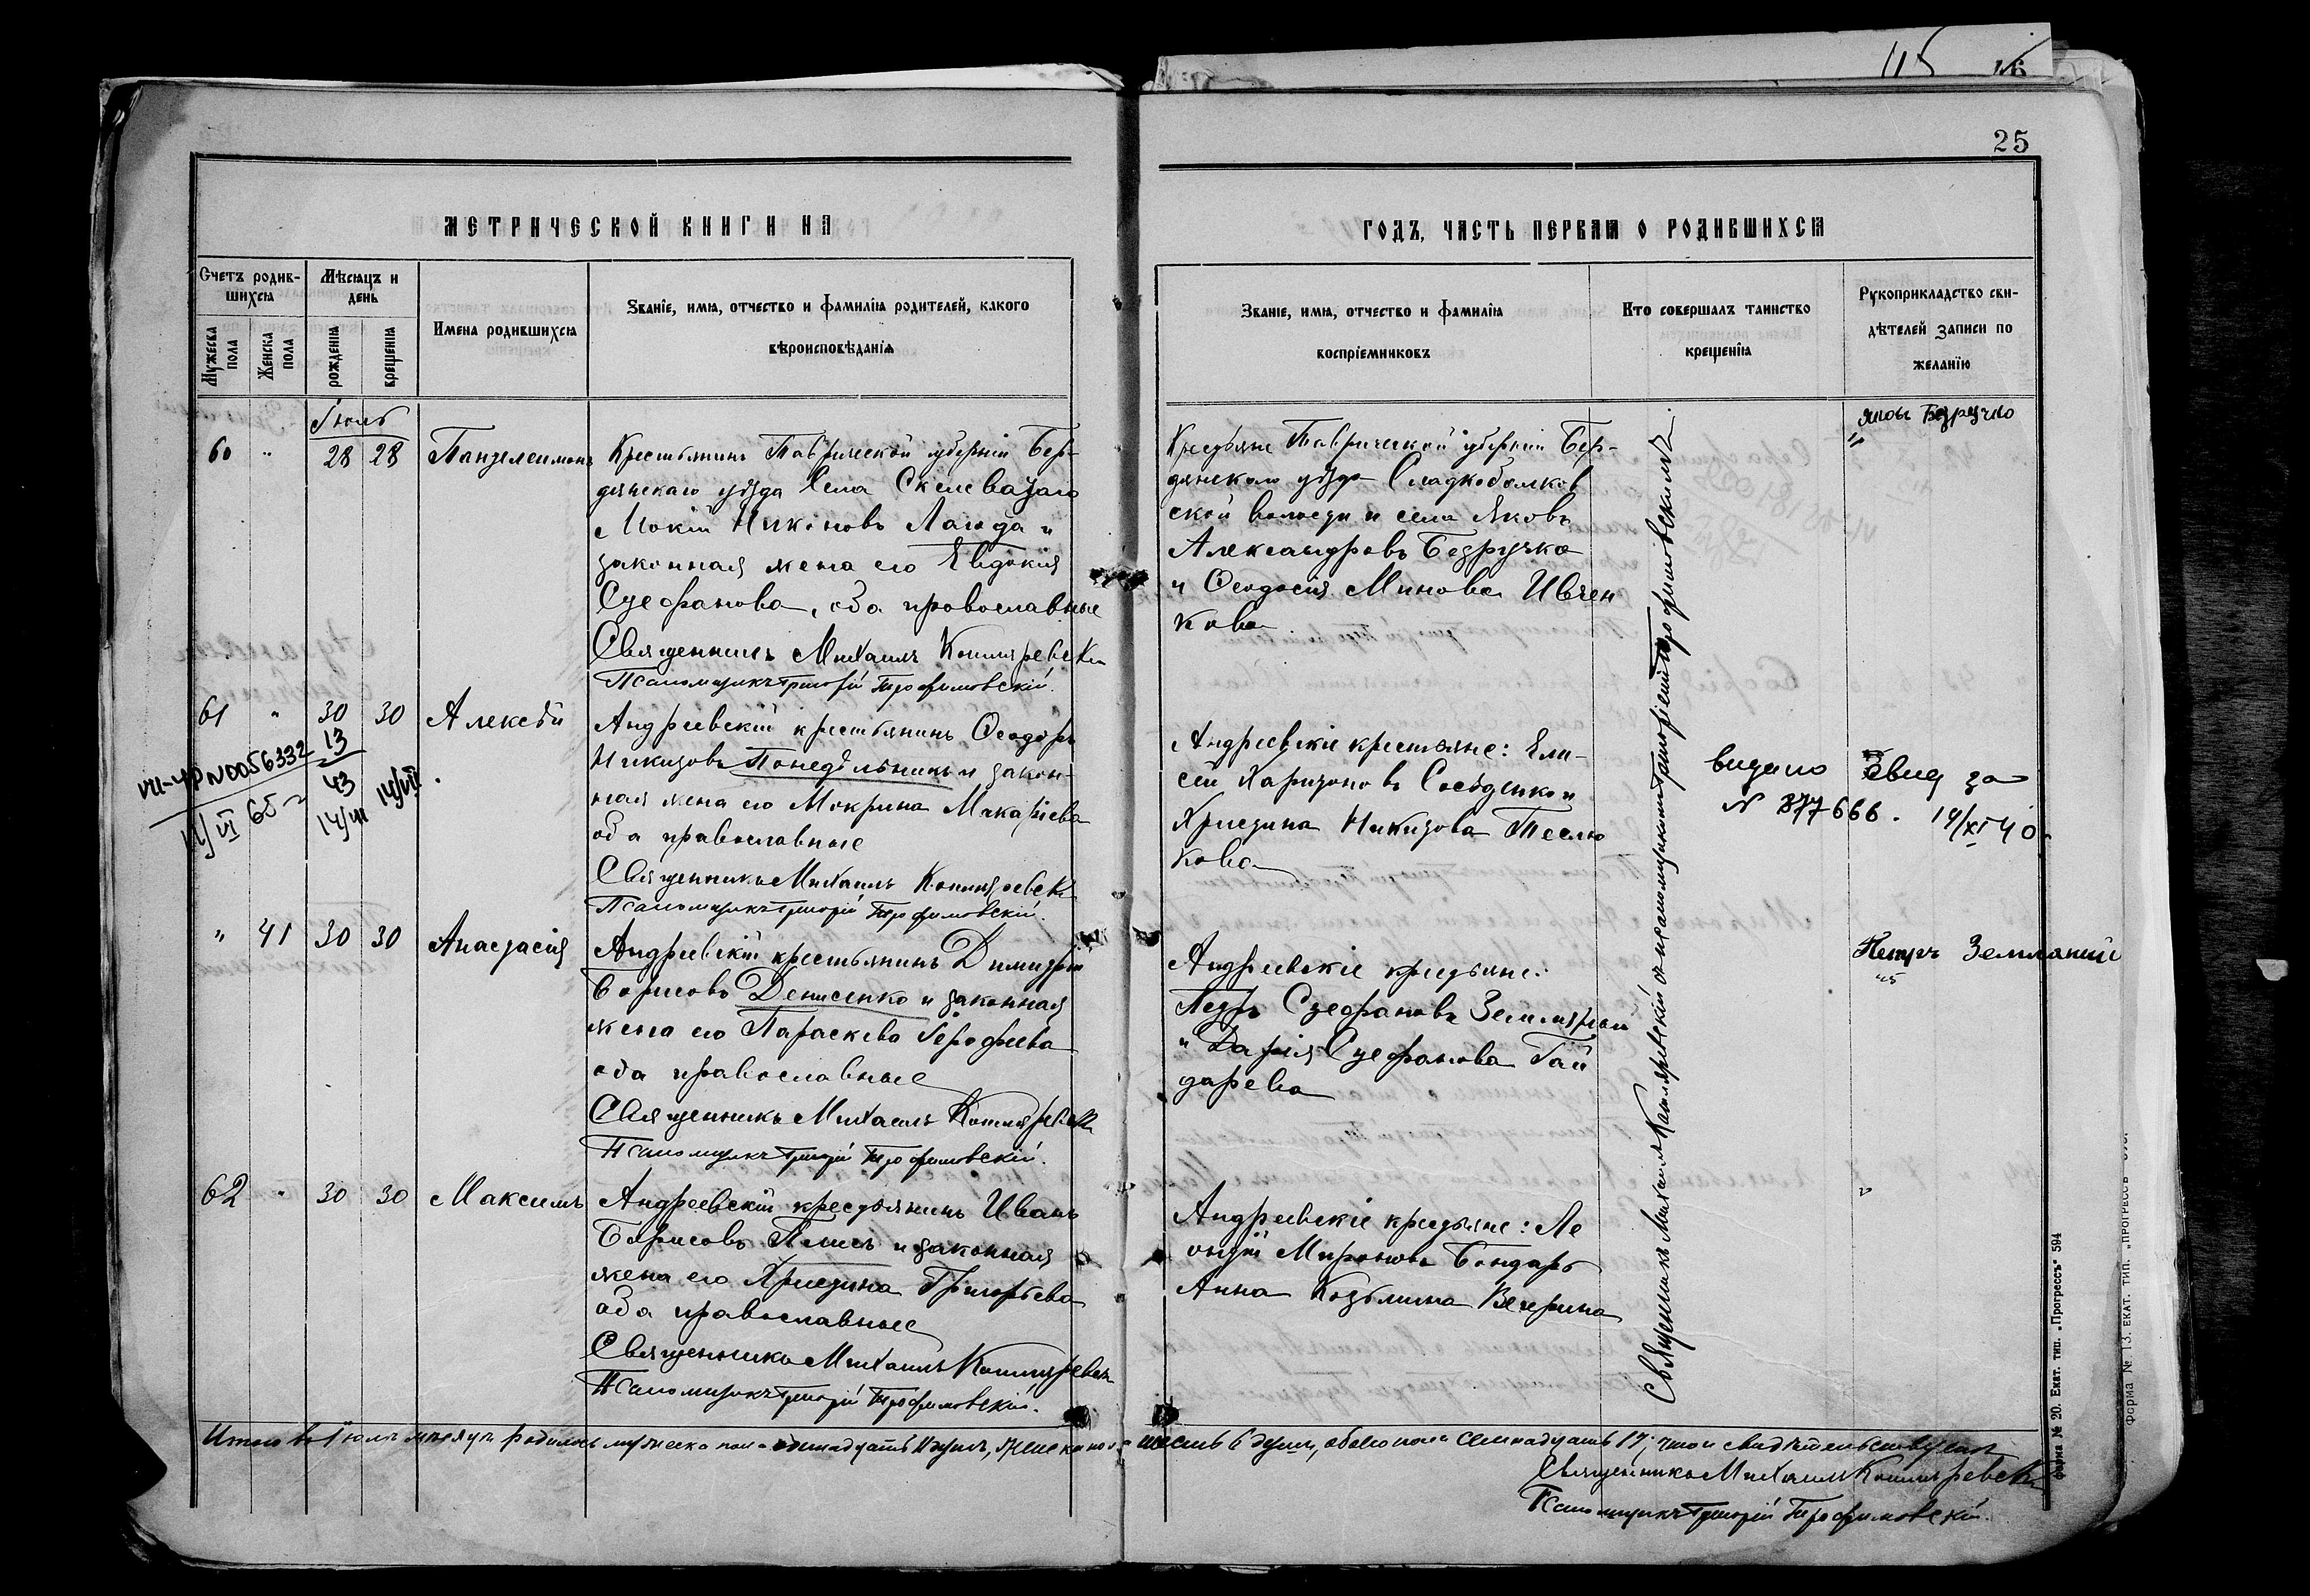 115 16
25
МЕТРИЧЕСКОЙ КНИГИ НА
ГОДЪ, ЧАСТЬ ПЕРВАЯ О РОДИВШИХСЯ
Счетъ родив-
шихся
Мужеска пола
Женска пола
Мѣсяцъ и
день
рожденія
крещенія
Имена родившихся
Званіе, имя, отчество и фамилія родителей, какого
вѣроисповѣданія
Званіе, имя, отчество и фамилія
воспріемниковъ
Кто совершалъ таинство
крещенія
Рукоприкладство сви-
дѣтелей записи по
желанію
Іюль
60 " 28 28 Пантелеимонъ
Крестьянинъ Таврической губерніи Бер-
дянскаго уѣзда Села Скелеватаго
Мокій Никоновъ Лагода и
законная жена его Евдокія
Стефанова, оба православные
Священникъ Михаилъ Котляревскій
Псаломщикъ Григорій Трофимовскій.
Крестьяне Таврической губерніи Бер-
дянскаго уѣзда Сладкобалков
ской волости и села Яковъ
Александровъ Безручко
и Ѳеодосія Минова Ивчен
кова
Яковъ Безручко
61 " 30 30 Алексѣй
Андреевскій крестьянинъ Ѳеодоръ
Никитовъ Понедѣльникъ и закон-
ная жена его Мокрина Макаріева
оба православные
Священникъ Михаилъ Котляревскій
Псаломщикъ Григорій Трофимовскій.
VII-ЯР N0056332
13
43
14/VII
14/VII
11/VI 65 г
Андреевскіе крестьяне: Ели-
сей Харитоновъ Сосѣденко и
Христина Никитова Теслю
кова
видано Свид за
N 877666. 14/XI 40
" 41 30 30 Анастасія
Андреевскій крестьянинъ Димитрій
Борисовъ Денисенко и законная
жена его Параскева Іерофеева
оба православные
Священникъ Михаилъ Котляревскій
Псаломщикъ Григорій Трофимовскій.
Андреевскіе крестьяне:
Петръ Стефановъ Земляный
и Дарія Стефанова Гай
дарева
Петръ Земляний
62 " 30 30 Максимъ
Андреевскій крестьянинъ Иванъ
Борисовъ Плисъ и законная
жена его Христина Григорьева
оба православные
Священникъ Михаилъ Котляревскій
Псаломщикъ Григорій Трофимовскій.
Андреевскіе крестьяне: Ле
онтій Мироновъ Бондарь
Анна Козьмина Вечерина
Священникъ Михаилъ Котляревскій съ псаломщикомъ Григоріемъ Трофимовскимъ.
Итого въ Іюль мѣсяцѣ родилось мужеска пола одинадцать 11 душъ, женска пола шесть 6 душъ, обоего пола семнадцать 17; что и свидѣтельствуемъ
Священникъ Михаилъ Котляревскій
Псаломщикъ Григорій Трофимовскій.
Форма № 20. Екат. тип. „Прогрессъ" 594
Форма № 13. ЕКАТ. ТИП. „ПРОГРЕССЪ"